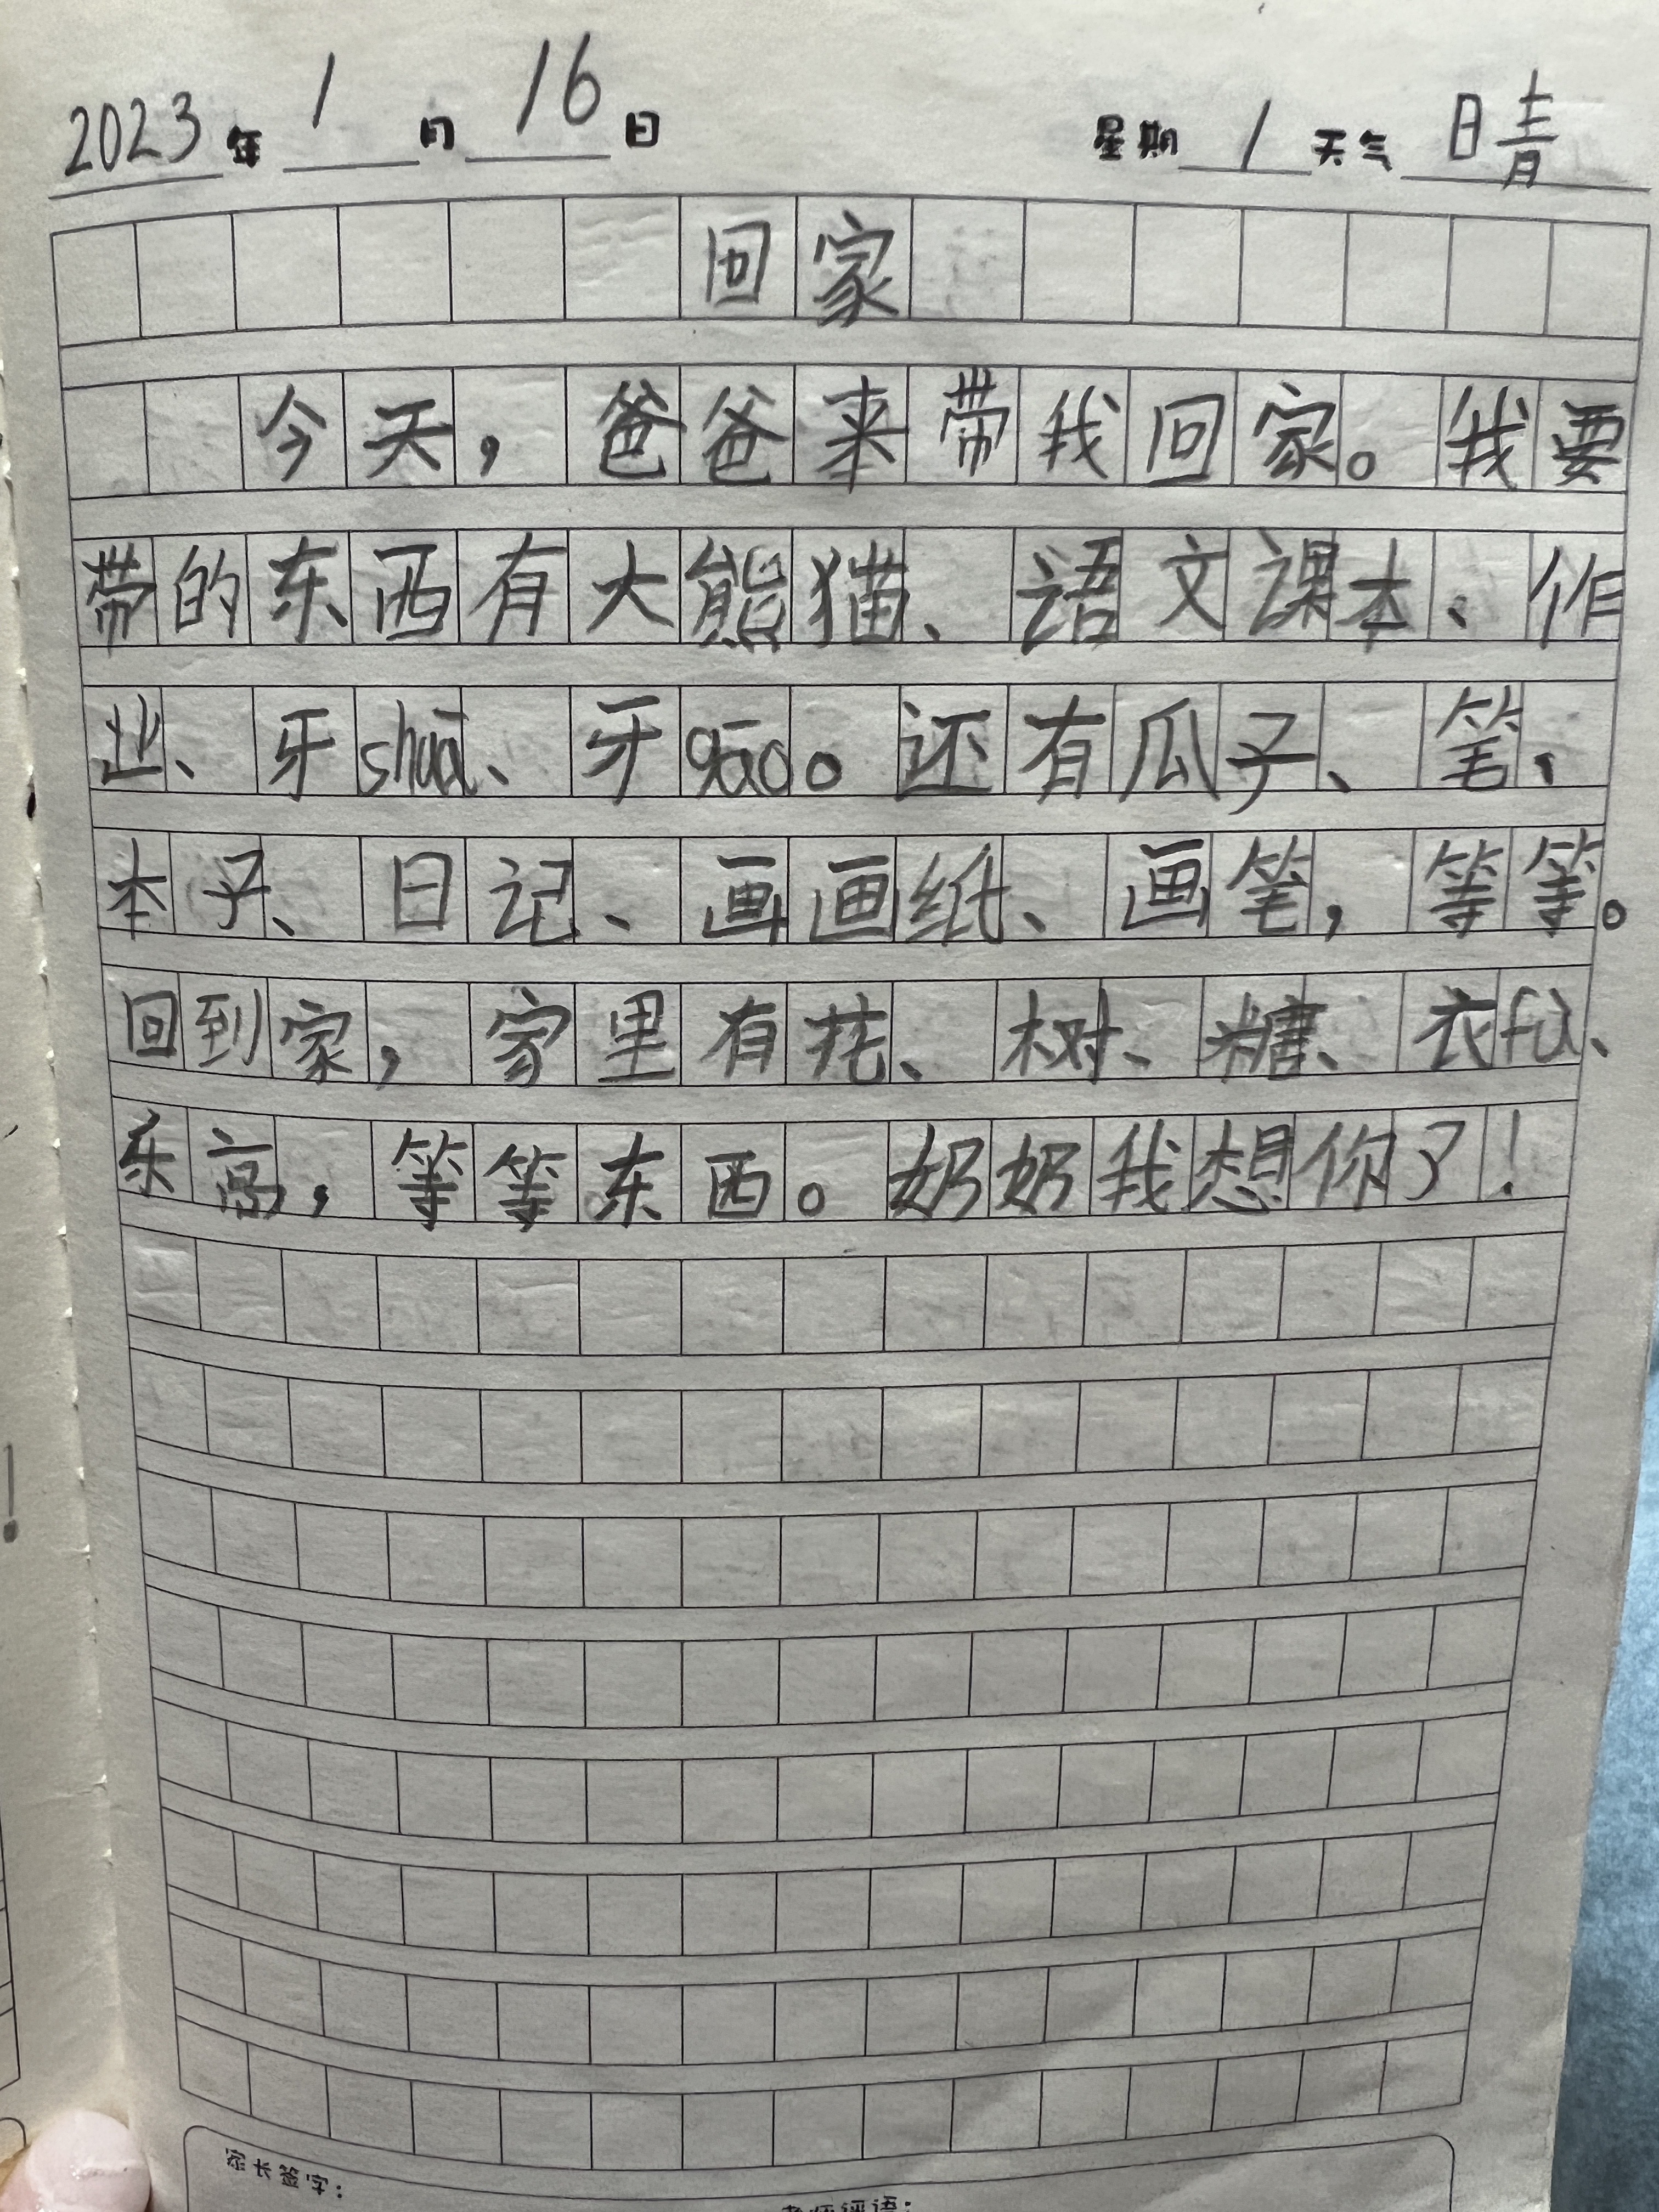 2023年 1 月 16 日 星期 1 天气 晴
回家
今天，爸爸来带我回家。我要
带的东西有大熊猫、语文课本、作
业、牙shuā、牙gāo。还有瓜子、笔、
本子、日记、画画纸、画笔，等等。
回到家，家里有花、树、糖、衣fú、
东高，等等东西。奶奶我想你了！
家长签字：
老师评语：